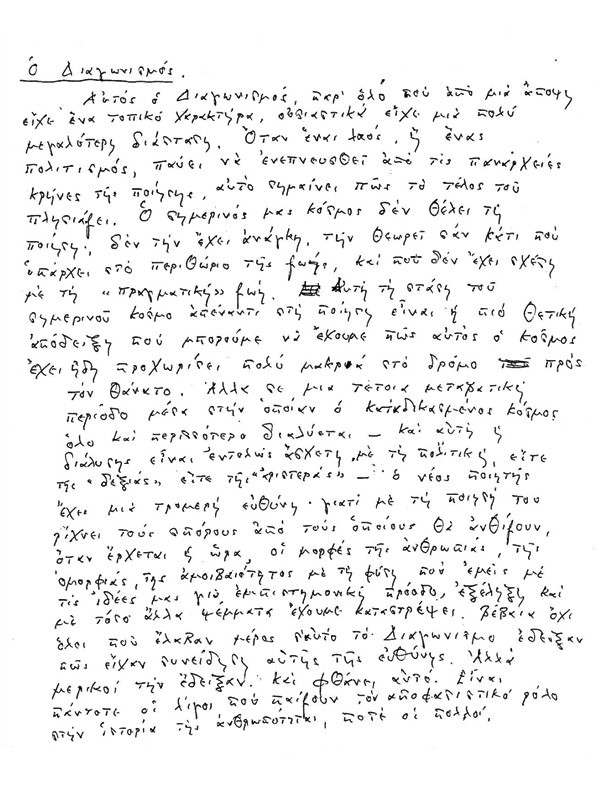 Ὁ Διαγωνισμός.
Αὐτός ὁ Διαγωνισμός, παρ' ὅλο πού ἀπό μιά ἄποψη
εἶχε ἕνα τοπικό χαρακτήρα, οὐσιαστικά εἶχε μιά πολύ
μεγαλύτερη διάσταση. Ὅταν ἕνας λαός, ἤ ἕνας
πολιτισμός, παύει νά ἐνεπνευσθεῖ ἀπό τίς πανάρχειές
κρήνες τῆς ποίησης, αὐτό σημαίνει πῶς τό τέλος τοῦ
πλησιάζει. Ὁ σημερινός μας κόσμος δέν θέλει τή
ποίηση· δέν τήν ἔχει ἀνάγκη, τήν θεωρεῖ σάν κάτι πού
ὑπάρχει στό περιθώριο τῆς ζωῆς, καί πού δέν ἔχει σχέση
μέ τή «πραγματική» ζωή. Αὐτή τή στάση τοῦ
σημερινοῦ κόσμο ἀπέναντι στή ποίηση εἶναι ἡ πιό θετική
ἀπόδειξη πού μποροῦμε νά ἔχουμε πῶς αὐτός ὁ κόσμος
ἔχει ἤδη προχωρίσει πολύ μακρυά στό δρόμο πρός
τόν θάνατο. Ἀλλά σε μια τέτοια μεταβατική
περίοδο μέσα στήν ὁποίαν ὁ καταδικασμένος κόσμος
ὅλο καί περισσότερο διαλύεται — καί αὐτή ἡ
διάλυσης εἶναι ἐντελῶς ἄσχετη μέ τή πολιτική, εἴτε
τῆς «δεξιᾶς» εἴτε τῆς «ἀριστερᾶς» — ὁ νέος ποιητής
ἔχει μιά τρομερή εὐθύνη· γιατί μέ τή ποίησή του
ρίχνει τούς σπόρους ἀπό τούς ὁποίους θά ἀνθίζουν,
ὅταν ἔρχεται ἡ ὥρα, οἱ μορφές τῆς ἀνθρωπιᾶς, τῆς
ὀμορφιάς, τῆς ἀμοιβαιότητος μέ τή φύση πού ἐμεῖς μέ
τίς ἰδέες μας γιά ἐπιστημονική πρόοδο, ἐξέλιξη καί
μέ τόσο ἄλλα ψέμματα ἔχουμε καταστρέψει. Βέβαια ὄχι
ὅλοι πού ἔλαβαν μέρος σ'αὐτό τό Διαγωνισμο ἔδειξαν
πῶς εἶχαν συνείδηση αὐτῆς τῆς εὐθύνης. Ἀλλά
μερικοί τήν ἔδειξαν. Καί φθάνει αὐτό. Εἶναι
πάντοτε οἱ λίγοι πού παίζουν τόν ἀποφασιστικό ρόλο
στήν ἱστορία τῆς ἀνθρωπότητας, ποτέ οἱ πολλοί.